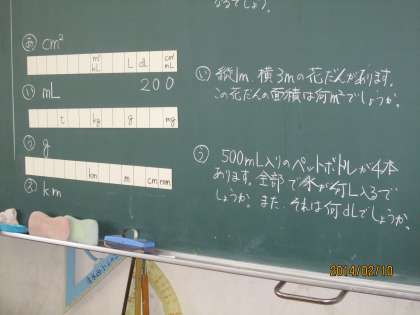 なるでしょう。
あ cm²
m³ kL L d cm³ mL
い mL 200
t kg g mg
う g
km m cm mm
え km
い 縦1m、横3mの花だんがあります。
この花だんの面積は何m²でしょうか。
う 500mL入りのペットボトルが4本
あります。全部で水が何L入るで
しょうか。また、それは何dLでしょうか。
2014/02/10